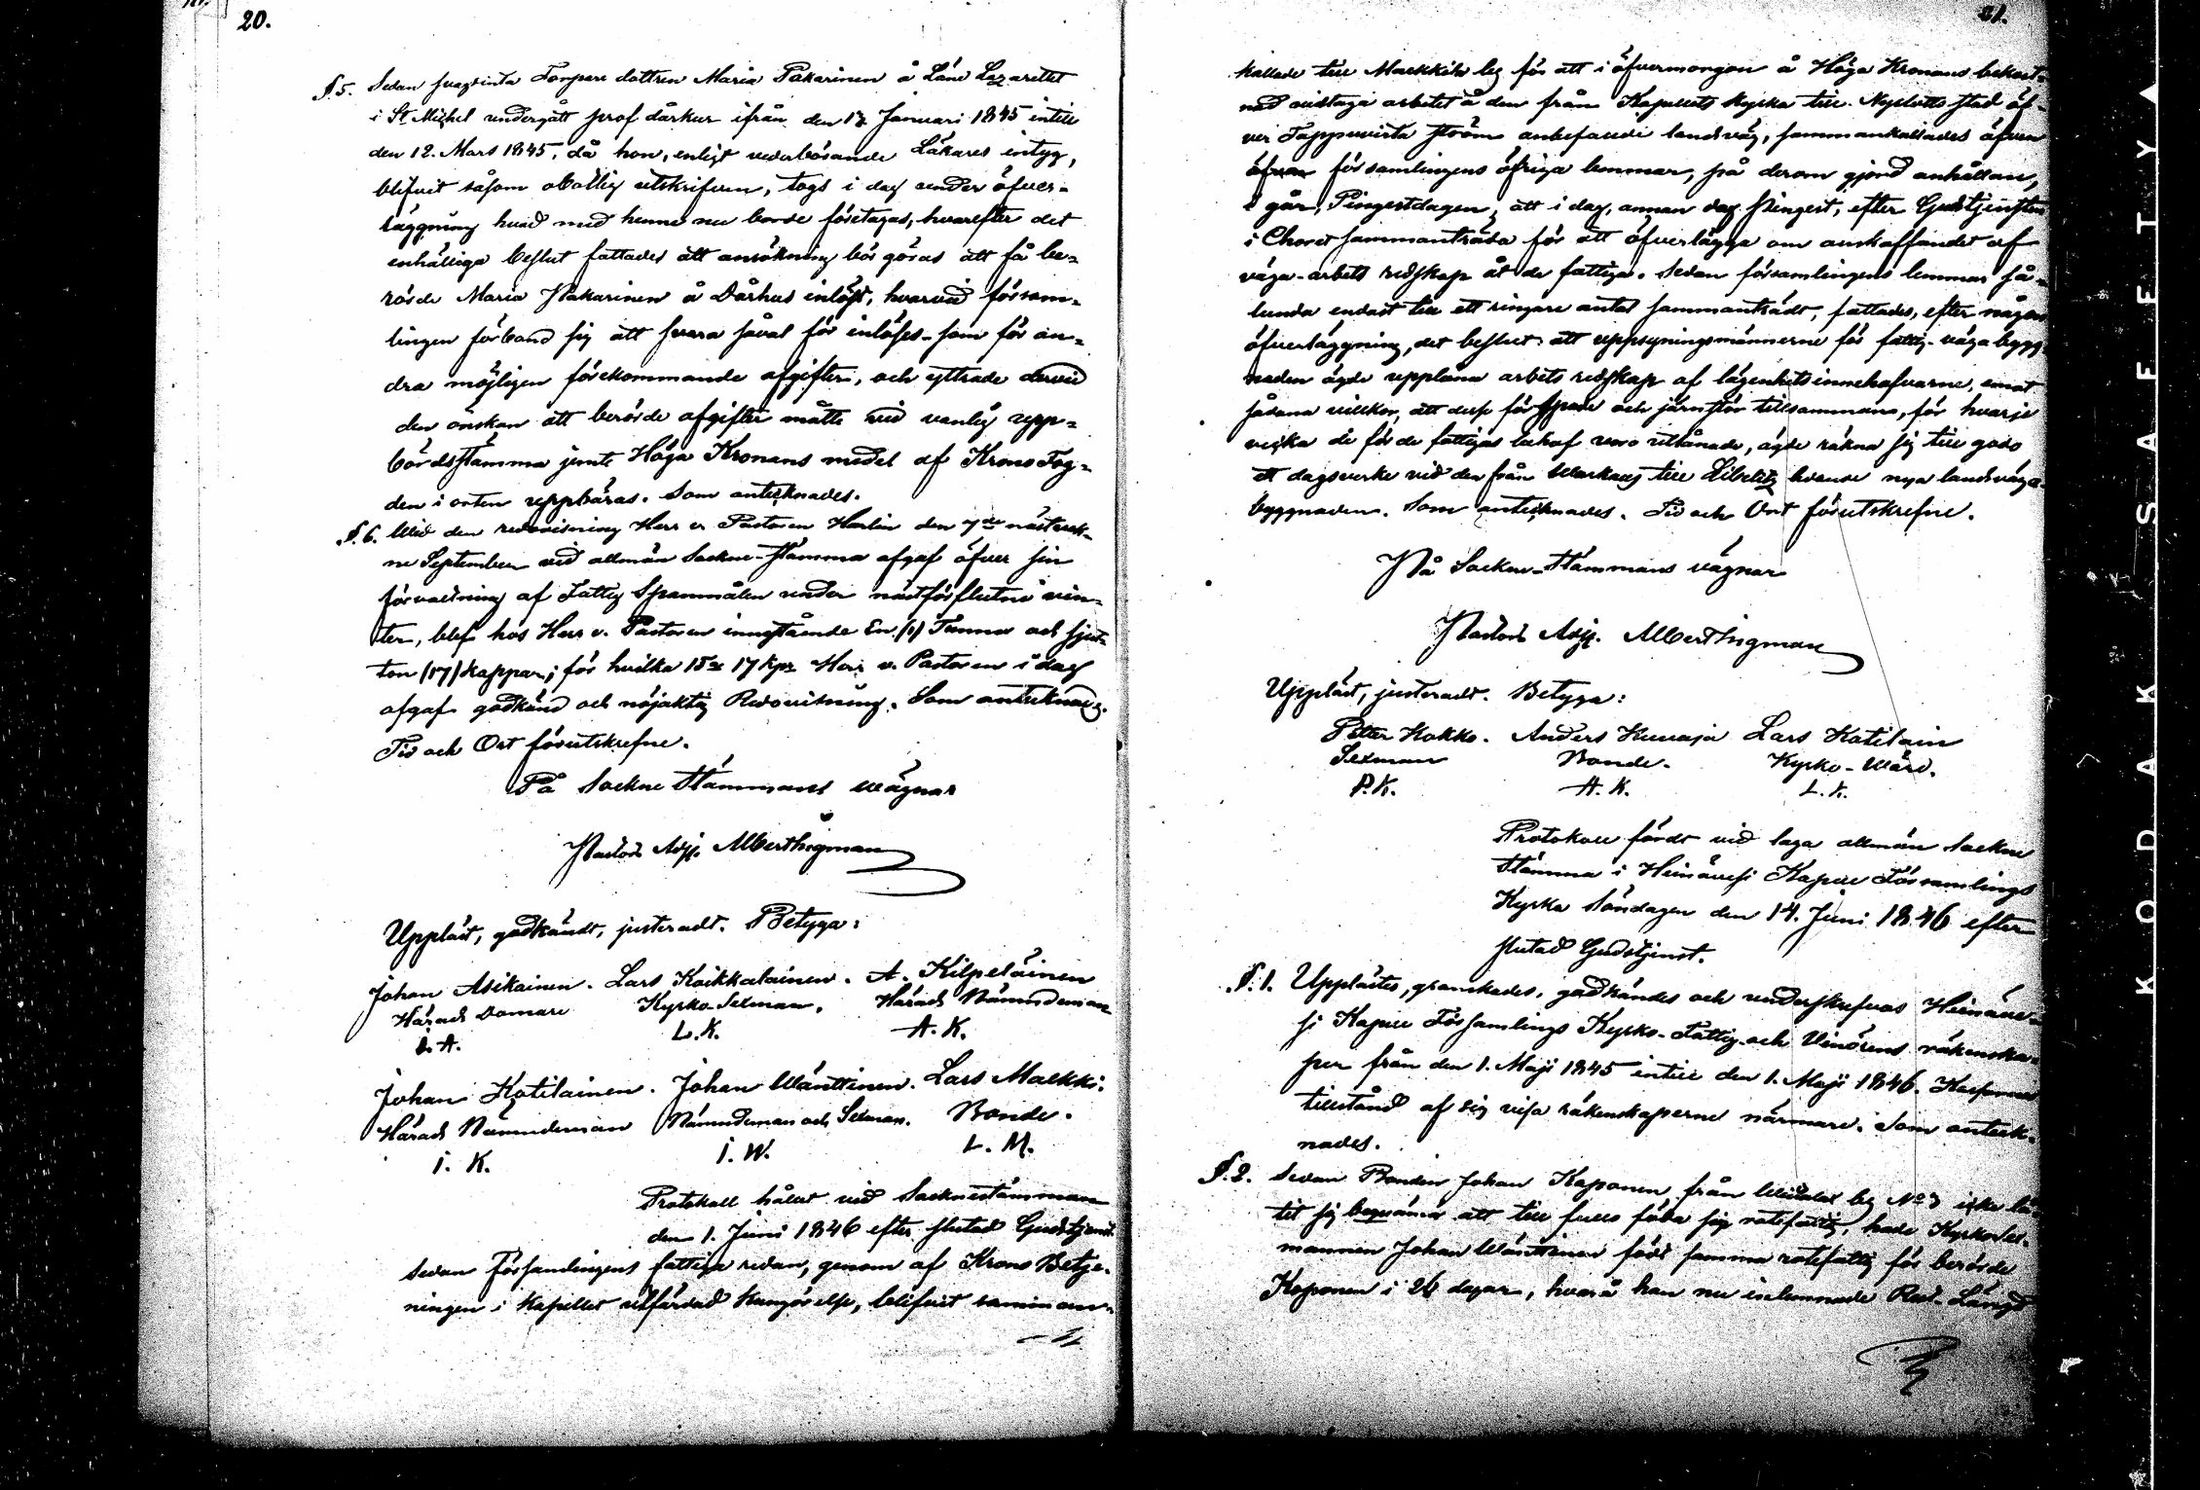 20.
§.5. Sedan Torpare dottren Maria Pakarinen å Läns Lazarettet
i St Michel undergått prof dårkur ifrån den 17 Januari 1845 intill
den 12. Mars 1845, då hon, enligt vederbörande Läkares intyg,
blifvit såsom obotlig utskrifven, togs i dag under öfver-
läggning hvad med henne nu borde företagas, hvarefter det
enhälliga beslut fattades att ansökning bör göras att få be-
rörde Maria Pakarinen å Dårhus inlöst, hvarvid försam-
lingen förband sig att svara såväl för inlöses- som för an-
dra möjligen förekommande afgifter, och yttrade dervid
den önskan att berörde afgifter måtte vid vanlig upp-
bördsstämma jemte Höga Kronans medel af Krono Fog-
den i orten uppbäras. Som antecknades.
§.6. Wid den redovisning Herr v. Pastoren Harlin den 7de nästvek-
ne September vid allmän Sockne-stämma afgaf öfver sin
förvaltning af Fattig Spannmålen under nästförflutne vin-
ter, blef hos Herr v. Pastoren innestående En (1) Tunna och sjut-
ton (17) kappar; för hvilka 1 T:a 17 kpr Herr v. Pastoren i dag
afgaf godkänd och nöjaktig Redovisning. Som antecknades.
Tid och Ort förutskrefne.
På Sockne Stämmans wägnar
Pastors Adj. Albert Higman
Uppläst, godkändt, justeradt. Betyga:
Johan Asikainen. Lars Kaikkalainen. A. Kilpeläinen
Härads Domare Kyrko Sexman. Härads Nämndeman
I. A. L. K. A. K.
Johan Kotilainen. Johan Wänttinen. Lars Maekki.
Härads Nämndeman Nämndeman och Sexman. Bonde.
I. K. I. W. L. M.
Protokoll hållet vid Socknestämman
den 1. Juni 1846 efter slutad Gudstjenst.
Sedan Församlingens fattiga redan, genom af Krono Betje-
ningen i Kapellet utfärdad Kungörelse, blifvit samman-
21.
kallade till Maekkilä by för att i öfvermorgon å Höga Kronans bekost-
nad vidtaga arbetet å den från Kapellets Kyrka till Nyslotts stad öf-
ver Tappuvirta ström anbefallde landsväg, sammankallades äfven
församlingens öfriga lemmar, på derom gjord anhållan,
i går, Pingstdagen, att i dag, annan dag Pingst, efter Gudstjensten
i Choret sammanträda för att öfverlägga om anskaffandet af
väga-arbets redskap åt de fattiga. Sedan församlingens lemmar så-
lunda endast till ett ringare antal sammanträdt, fattades, efter någon
öfverläggning, det beslut: att uppsyningsmännerne för fattig-väga bygg-
naden ägde upplåna arbets redskap af lägenhets innehafvarne, emot
sådana villkor, att desse för spade och järnstör tillsammans, för hvarje
vecka de för de fattigas behof voro utlånade, ägde räkna sig till godo
ett dagsverke vid den från Warkaus till Libelitz ledande nya landsvägs-
byggnaden. Som antecknades. Tid och Ort förutskrefne.
På Sockne-Stämmans vägnar
Pastors Adj. Albert Higman
Uppläst, justeradt. Betyga:
Petter Kokko. Anders Kuuraja Lars Kotilain
Sexman Bonde. Kyrko-Wärd.
P. K. A. K. L. K.
Protokoll fördt vid laga allmän Sockne
Stämma i Heinävesi Kapell Församlings
Kyrka Söndagen den 14. Juni 1846 efter
slutad Gudstjenst.
§.1. Upplästes, granskades, godkändes och underskrefvos Heinäve-
si Kapell Församlings Kyrko-Fattig och Vinörens räkenska-
per från den 1. Maji 1845 intill den 1. Maji 1846. Kassornas
tillstånd af sig visa räkenskaperne närmare. Som anteck-
nades.
§.2. Sedan Bonden Johan Kaponen från by No 3 icke lå-
tit sig beqväma att till fullo föda sig rotefattig, hade Kyrko Sex-
mannen Johan Wänttinen födt samma rotefattig för berörde
Kaponen i 26 dagar, hvarå han nu inlemnade Rest-Längd